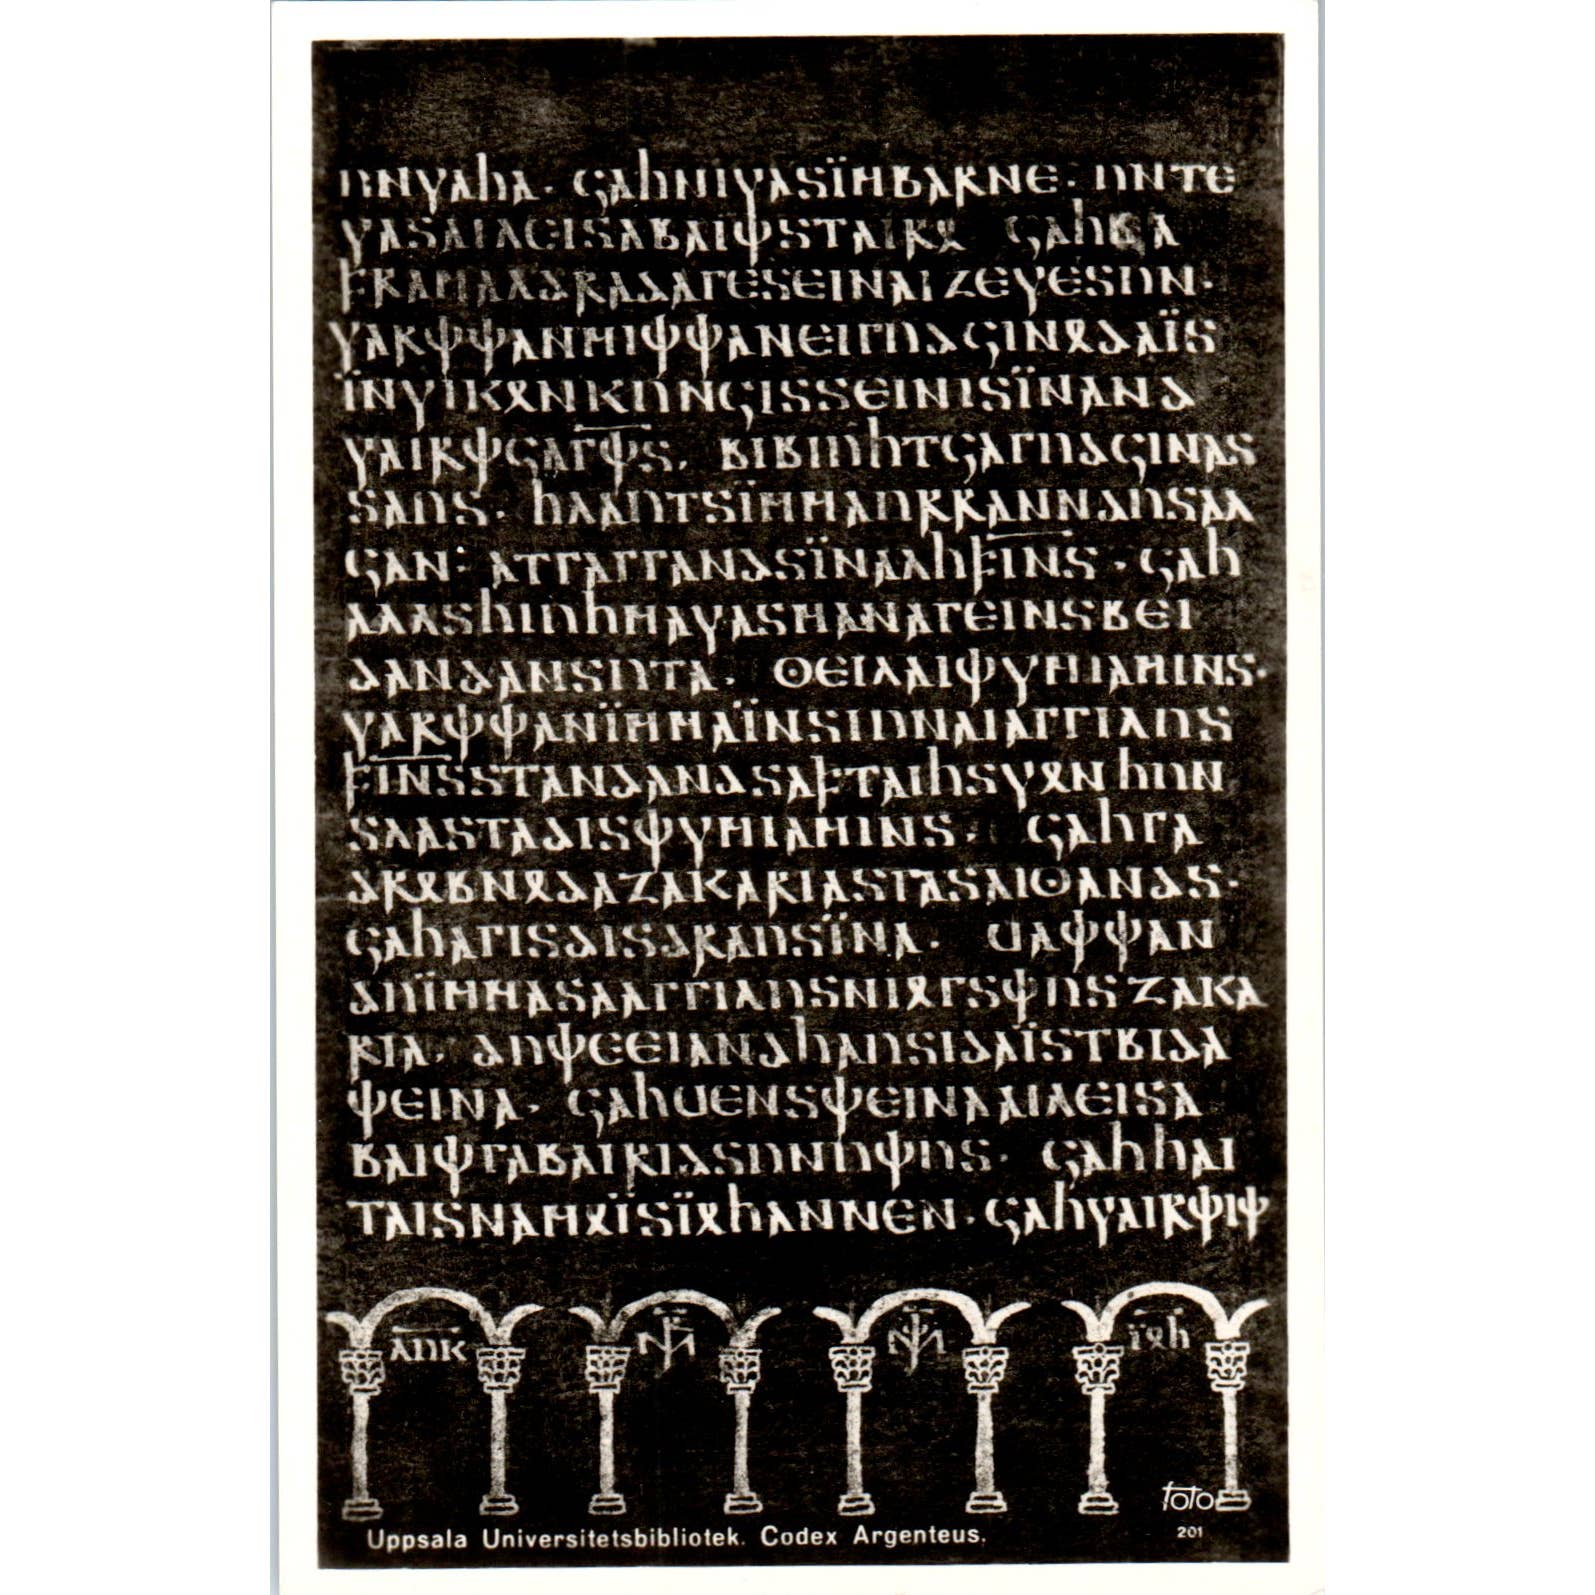 𐌿𐌽𐍅𐌰𐌷𐌰· 𐌾𐌰𐌷𐌽𐌹𐍅𐌰𐍃𐌹̈𐌼𐌱𐌰𐍂𐌽𐌴· 𐌿𐌽𐍄𐌴
𐍅𐌰𐍃𐌰𐌹𐌻𐌴𐌹𐍃𐌰𐌱𐌰𐌹𐌸𐍃𐍄𐌰𐌹𐍂𐍉 𐌾𐌰𐌷𐌱𐌰
𐍆𐍂𐌰𐌼𐌰𐌻𐌳𐍂𐌰𐌳𐌰𐌲𐌴𐍃𐌴𐌹𐌽𐌰𐌹𐌶𐌴𐍅𐌴𐍃𐌿𐌽·
𐍅𐌰𐍂𐌸𐌸𐌰𐌽𐌼𐌹𐌸𐌸𐌰𐌽𐌴𐌹𐌲𐌿𐌳𐌾𐌹𐌽𐍉𐌳𐌰𐌹̈𐍃
𐌹̈𐌽𐍅𐌹𐌺𐍉𐌽𐌺𐌿𐌽𐌾𐌹𐍃𐍃𐌴𐌹𐌽𐌹𐍃𐌹̈𐌽𐌰𐌽𐌳
𐍅𐌰𐌹𐍂𐌸𐌾𐌰𐌲̅𐌸̅𐍃· 𐌱𐌹𐌱𐌹𐌿𐌷𐍄𐌾𐌰𐌲𐌿𐌳𐌾𐌹𐌽𐌰𐍃
𐍃𐌰𐌿𐍃· 𐌷𐌻𐌰𐌿𐍄𐍃𐌹̈𐌼𐌼𐌰𐌿𐍂𐍂𐌰𐌽𐌽𐌳𐌿𐍃𐌰𐌻
𐌾𐌰𐌽: 𐌰𐍄𐌲𐌰𐌲𐌲𐌰𐌽𐌳𐍃𐌹̈𐌽𐌰𐌻𐌷𐍆̅𐌹̅𐌽̅𐍃· 𐌾𐌰𐌷
𐌰𐌻𐌻𐍃𐌷𐌹𐌿𐌷𐌼𐌰𐍅𐌰𐍃𐌼𐌰𐌽𐌰𐌲𐌴𐌹𐌽𐍃𐌱𐌴𐌹
𐌳𐌰𐌽𐌳𐌰𐌽𐍃𐌿𐍄𐌰· 𐍈𐌴𐌹𐌻𐌰𐌹𐌸𐍅𐌼𐌹𐌰𐌼𐌹𐌽𐍃·
𐍅𐌰𐍂𐌸𐌸𐌰𐌽𐌹̈𐌼𐌼𐌰𐌹̈𐌽𐍃𐌹𐌿𐌽𐌰𐌹𐌰𐌲𐌲𐌹𐌻𐌿𐍃
𐍆̅𐌹̅𐌽̅𐍃𐍃𐍄𐌰𐌽𐌳𐌰𐌽𐌳𐍃𐌰𐍆𐍄𐌰𐌹𐌷𐍃𐍅𐍉𐌽𐌷𐌿𐌽
𐍃𐌻𐌰𐍃𐍄𐌰𐌳𐌹𐍃𐌸𐍅𐌼𐌹𐌰𐌼𐌹𐌽𐍃· 𐌾𐌰𐌷𐌲𐌰
𐌳𐍂𐍉𐌱𐌽𐍉𐌳𐌰𐌶𐌰𐌺𐌰𐍂𐌹𐌰𐍃𐌲𐌰𐍃𐌰𐌹𐍈𐌰𐌽𐌳𐍃·
𐌾𐌰𐌷𐌰𐌲𐌹𐍃𐌳𐌹𐍃𐌳𐍂𐌰𐌿𐍃𐌹̈𐌽𐌰· 𐌵𐌰𐌸𐌸𐌰𐌽
𐌳𐌿𐌹̈𐌼𐌼𐌰𐍃𐌰𐌰𐌲𐌲𐌹𐌻𐌿𐍃𐌽𐌹𐍉𐌲𐍃𐌸𐌿𐍃𐌶𐌰𐌺𐌰
𐍂𐌹𐌰· 𐌳𐌿𐌸𐌴𐌴𐌹𐌰𐌽𐌳𐌷𐌰𐌿𐍃𐌹𐌳𐌰𐌹̈𐍃𐍄𐌱𐌹𐌳𐌰
𐌸𐌴𐌹𐌽𐌰· 𐌾𐌰𐌷𐌵𐌴𐌽𐍃𐌸𐌴𐌹𐌽𐌰𐌰𐌹𐌻𐌴𐌹𐍃𐌰
𐌱𐌰𐌹𐌸𐌲𐌰𐌱𐌰𐌹𐍂𐌹𐌳𐍃𐌿𐌽𐌿𐌸𐌿𐍃· 𐌾𐌰𐌷𐌷𐌰𐌹
𐍄𐌰𐌹𐍃𐌽𐌰𐌼𐍉𐌹̈𐍃𐌹̈𐍉𐌷𐌰𐌽𐌽𐌴𐌽· 𐌾𐌰𐌷𐍅𐌰𐌹𐍂𐌸𐌹𐌸
𐌻̅𐌿̅𐌺̅ 𐌼̅𐍂̅ 𐌼̅𐌸̅ 𐌹̅𐍉̅𐌷̅
foto
Uppsala Universitetsbibliotek. Codex Argenteus.
201